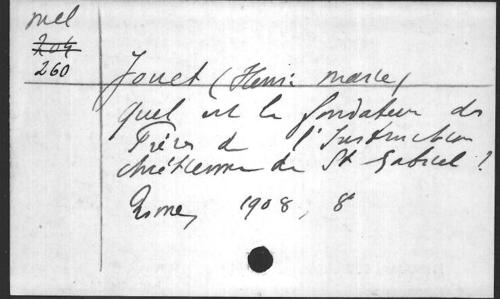 mel
204
260
Jouet (Henri Marie)
Quel est le fondateur des
Frères de l'Instruction
chrétienne de St Gabriel ?
Rome, 1908, 8°